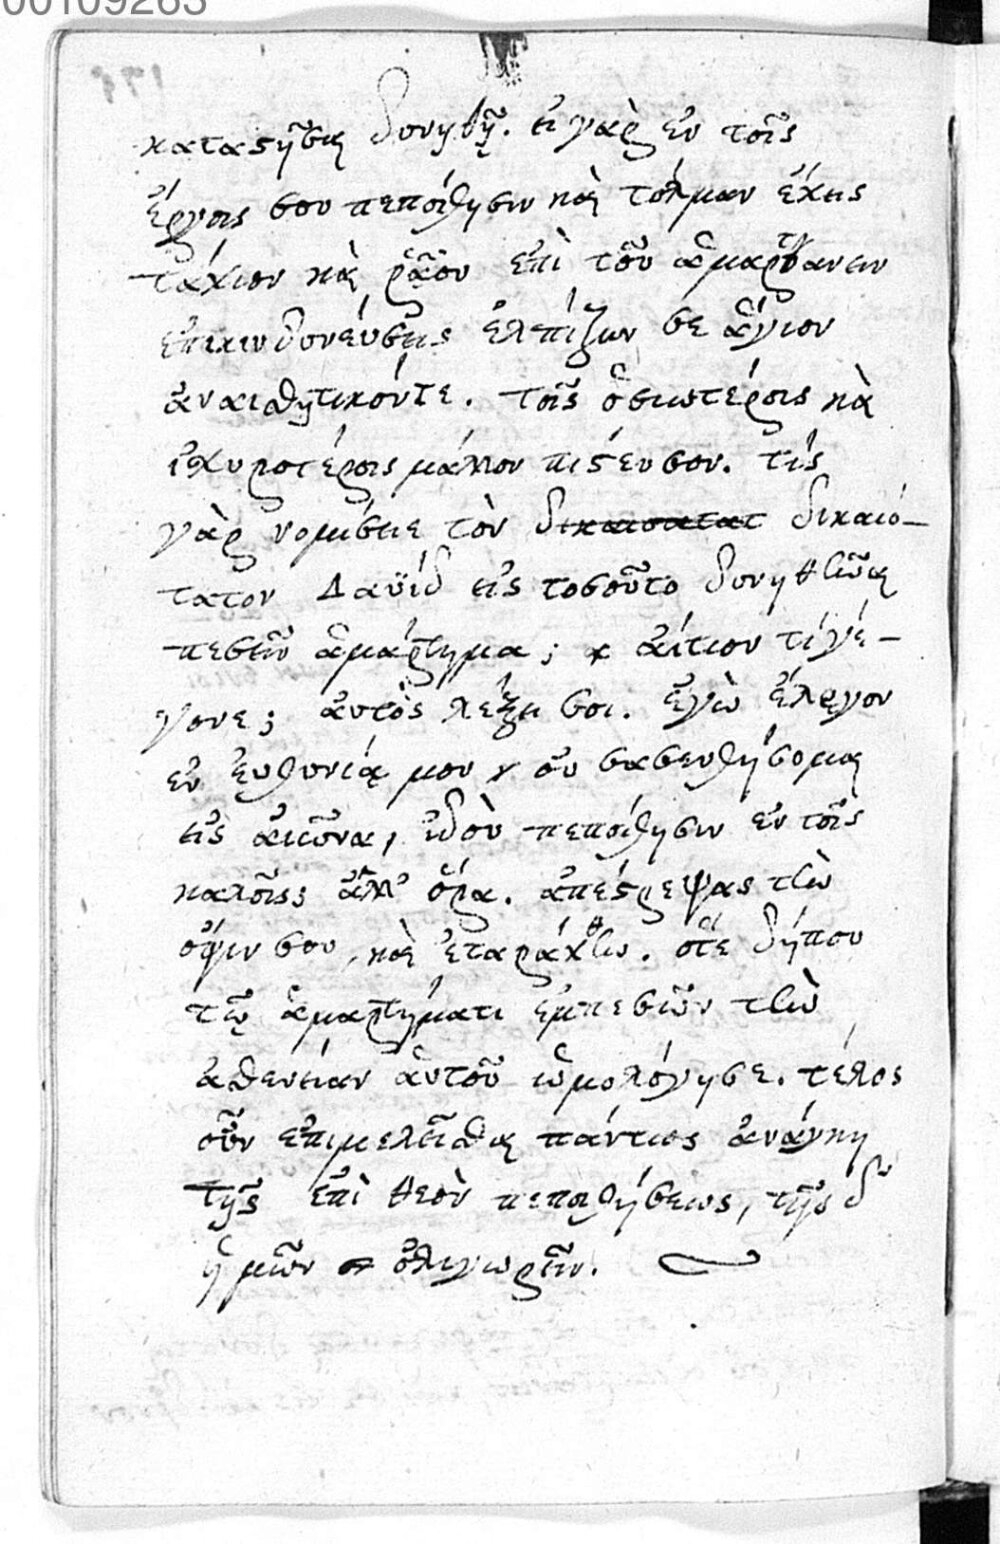 00109263
καταστῆσαι δυνηθῇ. εἰ γὰρ ἐν τοῖς
ἔργοις σου πεποίθησιν καὶ τόλμαν ἔχεις
τάχιον καὶ ῥᾷον ἐπὶ τοῦ ἁμαρτάνειν
ἐπικινδυνεύσεις ἐλπίζων σε ἅγιον
ἀναισθητικόν τε. τοῖς ὁσιωτέροις καὶ
ἰσχυροτέροις μᾶλλον πίστευσον. τίς
γὰρ νομίσειε τὸν δικαιοτατ δικαιό-
τατον Δαϋὶδ εἰς τοσοῦτο δυνηθῆναι
πεσεῖν ἁμάρτημα; αἴτιον τί γέ-
γονε; αὐτὸς λέξει σοι. ἐγὼ ἔλεγον
ἐν εὐθυνίᾳ μου οὐ σαλευθήσομαι
εἰς αἰῶνα, ἰδοὺ πεποίθησιν ἐν τοῖς
καλοῖς; ἀλλ' ὅρα. ἀπέστρεψας τὴν
ὄψιν σου, καὶ ἐταράχθην. ὅτε δήπου
τῷ ἁμαρτήματι ἐμπεσὼν τὴν
ἀσθένειαν αὑτοῦ ὡμολόγησε. τέλος
οὖν ἐπιμελεῖσθαι πάντως ἀνάγκη
τῆς ἐπὶ θεὸν πεποιθήσεως, τῆς δ'
ἡμῶν ὀλιγωρεῖν.